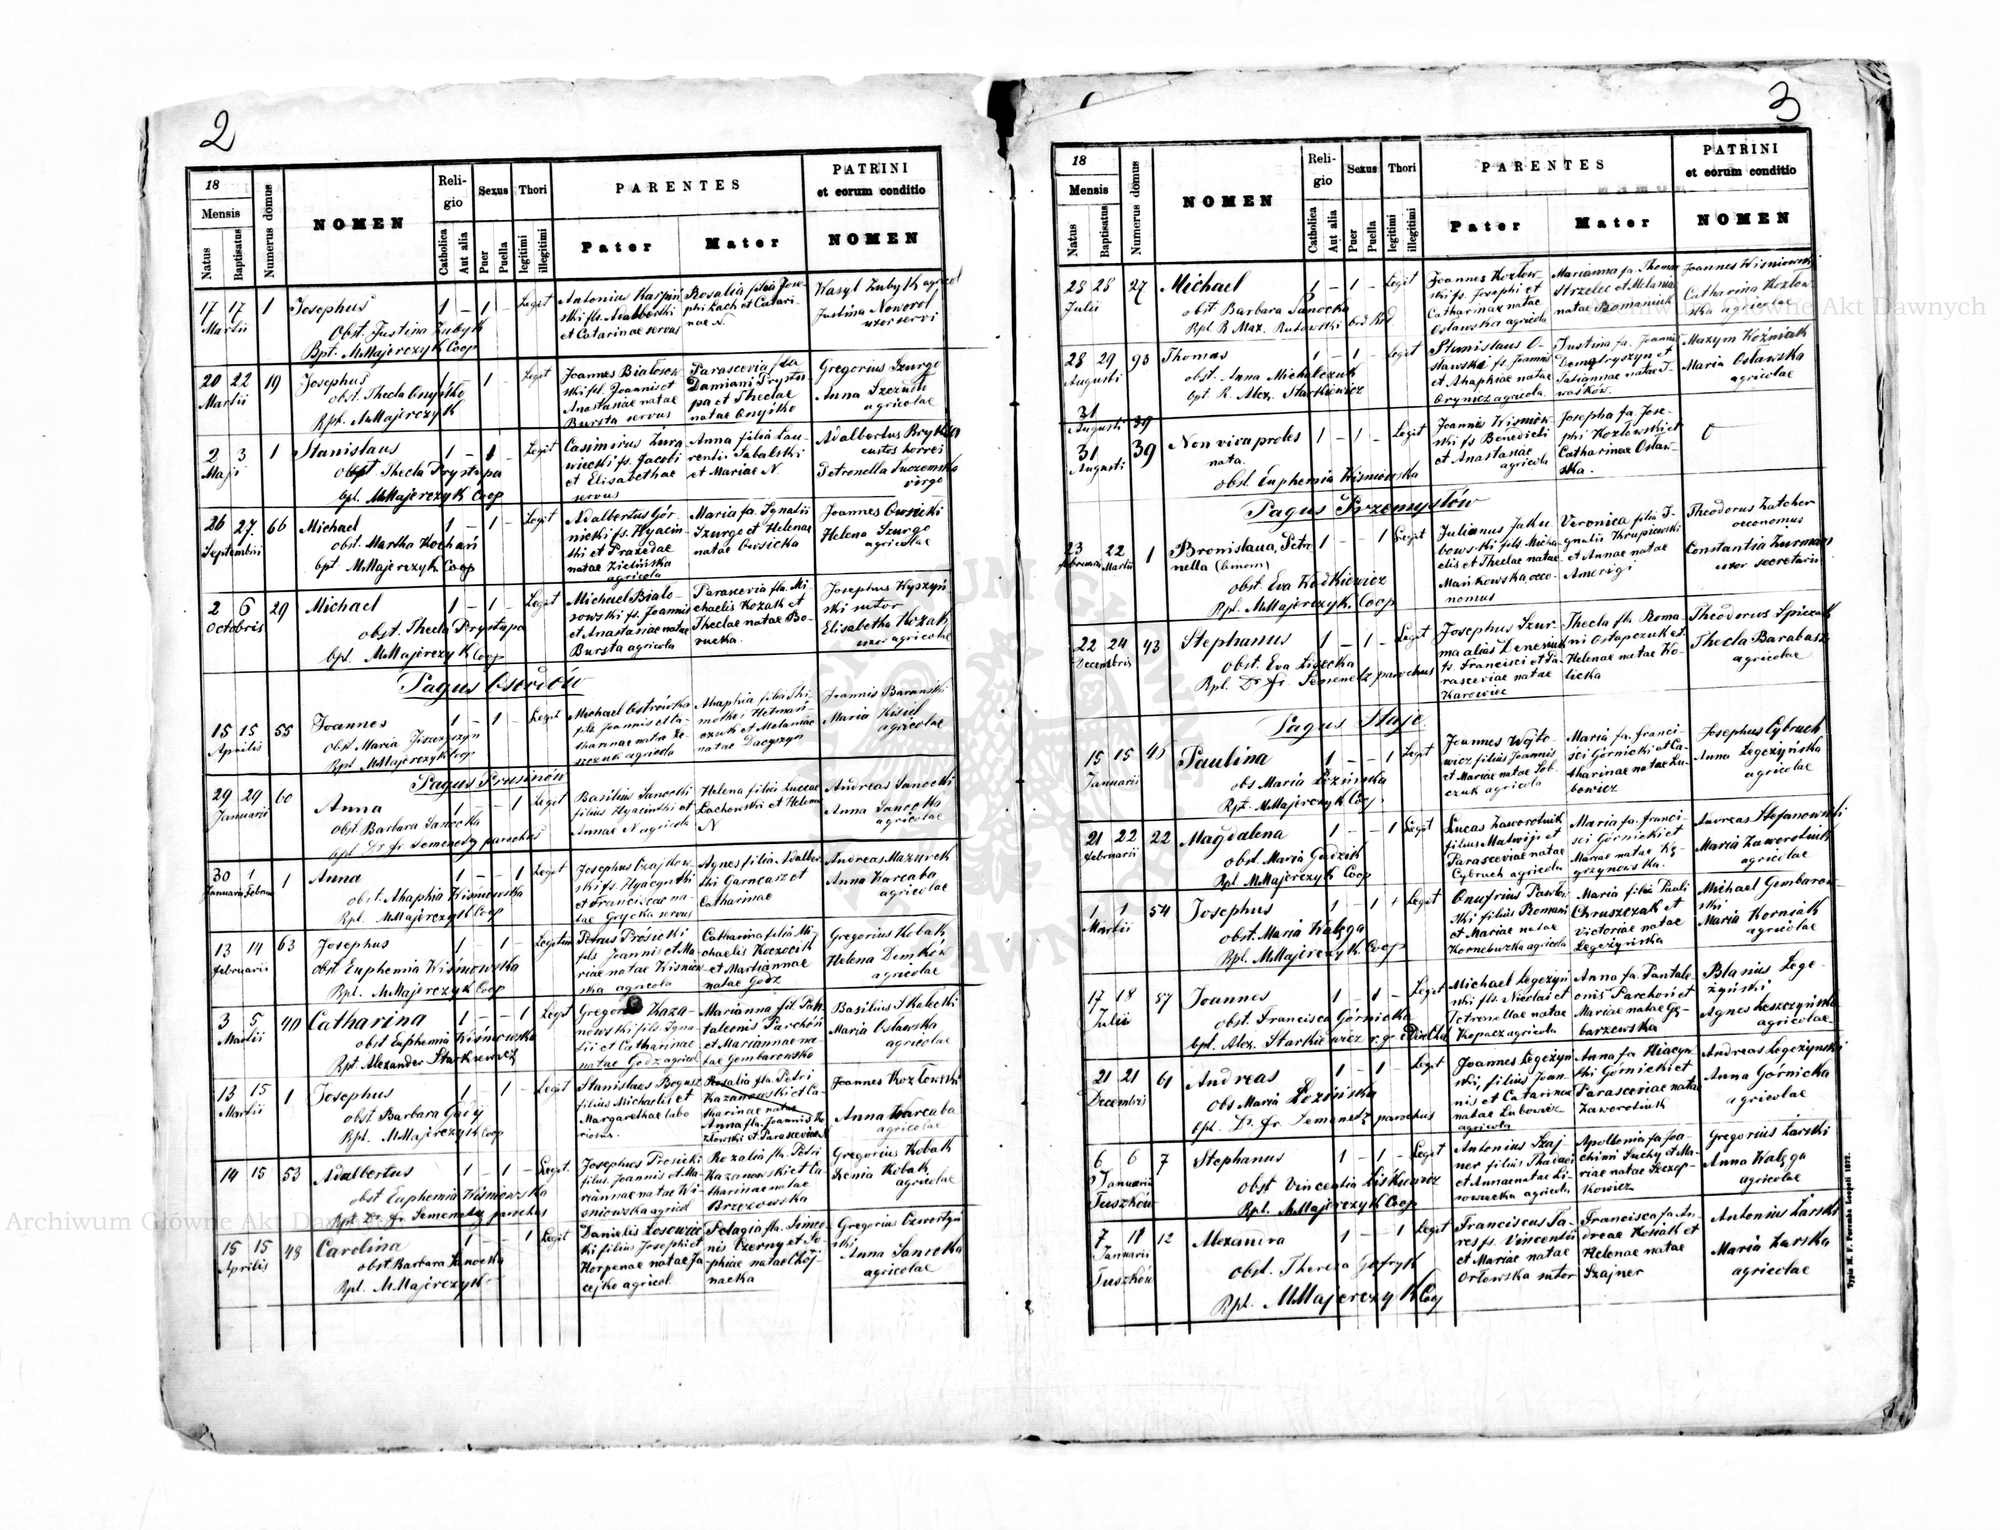 2
18
Mensis
Natus
Baptisatus
Numerus domus
NOMEN
Religio
Catholica
Aut alia
Sexus
Puer
Puella
Thori
legitimi
illegitimi
PARENTES
Pater
Mater
PATRINI
et eorum conditio
NOMEN
17 17 1 Josephus 1 – 1 – Legit
Martii
Obst. Justina Zubyk
Bpt. M Majerczyk Coop
Antonius Karpiń-
ski fls. Adalberti
et Catarinae servus
Rosalia filia Jose-
phi Lach et Catari-
nae N.
Wasyl Zubyk agricol
Justina Noworol
uxor servi
20 22 19 Josephus 1 1 – Legit
Martii
obst. Thecla Onyśko
Rpt. M Majerczyk
Joannes Białosow-
ski fs. Joannis et
Anastasiae natae
Bursta servus
Parascevia fla
Damiani Prystu-
pa et Theclae
natae Onyśko
Gregorius Szurgo
Anna
agricolae
2 3 1 Stanislaus 1 – 1 Legit
Maji
obst Thecla Prystupa
bpt. M Majerczyk Coop
Casimirus Żura-
wiecki fs. Jacobi
et Elisabethae
servus
Anna filia Lau-
rentii Sabalski
et Mariae N.
Adalbertus
custos horrei
Petronella
virgo
26 27 66 Michael 1 – 1 – Legit
Septembri
obst. Martha Kochań
bpt M Majerczyk Coop
Adalbertus Gór-
nicki fs. Hyacin-
thi et Praxedae
natae Zielińska
agricola
Maria fa. Ignatii
Szurgo et Helenae
natae Owsicka
Joannes Owsicki
Helena Szurgo
agricolae
2 6 29 Michael 1 – 1 – Legit
Octobris
obst. Thecla Prystupa
bpt. M Majerczyk Coop
Michael Biało-
sowski fs. Joannis
et Anastasiae natae
Bursta agricola
Parascevia fla. Mi-
chaelis Kozak et
Theclae natae Bo-
rucka.
Josephus Wyszyń-
ski sutor
Elisabetha Kozak
uxor agricolae
Pagus Ostrów
15 15 55 Joannes 1 – 1 – Legit
Aprilis
obst Maria
Rpt M Majerczyk Coop
Michael Ostrówka
fils. Joannis et Ca-
tharinae natae
agricola
Ahaphia filia Thi-
mothei Hetmań-
czuk et Melaniae
natae Dacyszyn
Joannis Barański
Maria Kisiel
agricolae
Pagus Prusinów
29 29 60 Anna 1 – – 1 Legit
Januarii
obst. Barbara Sanocka
bpt Dr Fr Semenetz parochus
Basilius Sanocki
filius Hyacinthi et
Annae N agricola
Helena filia Luccae
Lachowski et Helenae
N
Andreas Sanocki
Anna Sanocka
agricolae
30 1 1 Anna 1 – – 1 Legit
Januarii Februar
obst. Ahaphia Wiśniowska
Rpt. M Majerczyk Coop
Josephus Czajkow-
ski fs. Hyacynthi
et Franciscae na-
tae Grycka servus
Agnes filia Adalber-
ti Garncarz et
Catharinae
Andreas Mazurek
Anna Warcaba
agricolae
13 14 63 Josephus 1 – 1 – Legitim
februarii
obst Euphemia Wiśniowska
Rpt. M Majerczyk Coop
Petrus Prósicki
fils. Joannis et Ma-
riae natae Wiśniow-
ska agricola
Catharina filia Mi-
chaelis Koczocik
et Mariannae
natae Godz
Gregorius Kobak
Helena Demków
agricolae
3 5 40 Catharina 1 – – 1 Legit
Martii
obst Euphemia Wiśniowska
Rpt. Alexander Starkiewicz
Gregorius Kaza-
nowski fils Igna-
tii et Catharinae
natae Godz agricol
Marianna fil. Pan-
taleonis Parchóń
et Mariannae na-
tae Gembarowska
Basilius Skalecki
Maria Osławska
agricolae
13 15 1 Josephus 1 1 – Legit
Martii
obst. Barbara Gudij
Rpt. M Majerczyk Coop
Stanislaus Bogusz
filius Michaelis et
Margarethae labo
riosus.
Rosalia fla. Petri
Kazanowski et Ca-
tharinae natae
Anna fla. Joannis Ko-
złowski et Parasceviae N
Joannes Kozłowski
Anna Warcaba
agricolae
14 15 53 Adalbertus 1 – 1 – Legit.
obst Euphemia Wiśniowska
Rpt Dr. Fr Semenetz parochus
Josephus Prosicki
filus. Joannis et Ma-
riannae natae Wi-
śniowska agricol
Rozalia fla. Petri
Kazanowski et Ca-
tharinae natae
Brzozowska
Gregorius Kobak
Xenia Kobak
agricolae
15 15 48 Carolina 1 – – 1 Legit
Aprilis
obst. Barbara Sanocka
Rpt. M Majerczyk
Daniel Łosowic-
ki filius Josephi et
Horpenae natae Ja-
cejko agricol
Pelagia fla. Simeo-
nis Czerny et So-
phiae natae Chój-
nacka
Gregorius Czwortyń-
ski
Anna Sanocka
agricolae
3
18
Mensis
Natus
Baptisatus
Numerus domus
NOMEN
Religio
Catholica
Aut alia
Sexus
Puer
Puella
Thori
legitimi
illegitimi
PARENTES
Pater
Mater
PATRINI
et eorum conditio
NOMEN
28 28 27 Michael 1 – 1 – Legit
Julii
obst Barbara Sanocka
Rpt R Max. Rudowski
Joannes Kozłow-
ski fs. Josephi et
Catharinae natae
Osławska agricola
Marianna fa. Thomae
Strzelec et Melaniae
natae Romaniuk
Joannes Wiśniowski
Catharina Kozłow-
ska agricolae
28 29 93 Thomas 1 – 1 – Legit
Augusti
obst. Anna Michalczuk
bpt. R. Alex. Starkiewicz
Stanislaus O-
sławski fs. Joannis
et Ahaphiae natae
Orynicz agricola.
Justina fa. Joannis
Demetryszyn et
Tatiannae natae I-
waśków.
Maxym Koźniak
Maria Osławska
agricolae
31
Augusti 39
31 39 Non viva proles 1 – 1 – Legit
Augusti
nata.
obst. Euphemia Wiśniowska
Joannes Wiśniow-
ski fs Benedicti
et Anastasiae
agricola
Josepha fa. Jose-
phi Kozłowski et
Catharinae Osław-
ska.
0
Pagus Przemysłów
23 22 1 Bronislaua, Petro- 1 – – 1 Legit
februarii Martii
nella (binom)
obst. Eva Wadkiewicz
Rpt. M Majerczyk. Coop
Julianus Jaku-
bowski fils. Micha-
elis et Theclae natae
Mańkowska, oeco-
nomus
Veronica filia I-
gnatii Krupiewski
et Annae natae
Amerigi
Theodorus Zatcher
oeconomus
Constantia Zurman
uxor secretarii
22 24 43 Stephanus 1 – 1 – Legit
Decembris
obst. Eva Lisecka
Rpt. Dr Fr. Semenetz parochus
Josephus Szur-
ma alias Deneniuk
fs. Francisci et Pa-
rasceviae natae
Karowiec
Thecla fla. Roma-
ni Ostapczuk et
Helenae natae Ko-
licka
Theodorus Spiczak
Thecla Barabasz
agricolae
Pagus Staje
15 15 45 Paulina 1 – – 1 Legit
Januarii
obs Maria Łozińska
Rpt. M Majerczyk Coop
Joannes Wojto-
wicz filius Joannis
et Mariae natae Sob-
czuk agricola
Maria fa. Franci-
sci Górnicki et Ca-
tharinae natae Lu-
bowicz
Josephus Cybruch
Anna Legeżyńska
agricolae
21 22 22 Magdalena 1 – – 1 Legit
februarii
obst. Maria Gudzik
Rpt M Majerczyk Coop
Lucas Zaworotnik
filius Matwiji et
Parasceviae natae
Cybruch agricola
Maria fa. Franci-
sci Górnicki et
Mariae natae Wę-
grzynowska.
Andreas Stefanowski
Maria Zaworotnik
agricolae
1 1 54 Josephus 1 – 1 + Legit
Martii
obst. Maria Wałęga
Rpt. M Majerczyk Coop
Onufrius Pawłow-
ski filius Romani
et Mariae natae
Kornebuzka agricola
Maria filia Pauli
Chruszczak et
Victoriae natae
Legeżyńska
Michael Gembarow-
ski
Maria Korniak
agricolae
17 18 57 Joannes 1 – 1 – Legit
Julii
obst. Francisca Górnicka
bpt. Alex. Starkiewicz
Michael Legeżyń-
ski fls. Nicolai et
Petronellae natae
Kopacz agricola
Anna fa. Pantale-
onis Parchoń et
Mariae natae Gę-
barzewska
Blasius Lege-
żyński
Agnes Leszczyńska
agricolae
21 21 61 Andreas 1 – 1 Legit
Decembris
obs Maria Łozińska
bpt. Dr. Fr. Semenetz parochus
Joannes Legeżyń-
ski, filius Joan-
nis et Catarinae
natae Lubowicz
agricola
Anna fa Hiacyn-
thi Górnicki et
Parasceviae natae
Zaworotniuk
Andreas Legeżyński
Anna Górnicka
agricolae
6 6 7 Stephanus 1 – 1 – Legit
Januarii
Tuszków
obst Vincentia Liskiewicz
Rpt. M Majerczyk Coop
Antonius Szaj-
ner filius Thadaei
et Annae natae
agricola
Apollonia fa Joa-
chimi Suchy et Ma-
riae natae Szczep-
kowicz
Gregorius Żarski
Anna Wałęga
agricolae
7 18 12 Alexandra 1 – – 1 Legit
Januarii
Tuszków
obst. Theresa Jafryk
Rpt. M Majerczyk Coop
Franciscus Sa-
res fs. Vincentii
et Mariae natae
Orłowska sutor
Francisca fa. An-
dreae Kosiak et
Helenae natae
Szajner
Antonius Żarski
Maria Żarska
agricolae
Typis H. F. Poremba Leopoli 1872.
Archiwum Główne Akt Dawnych
Archiwum Główne Akt Dawnych